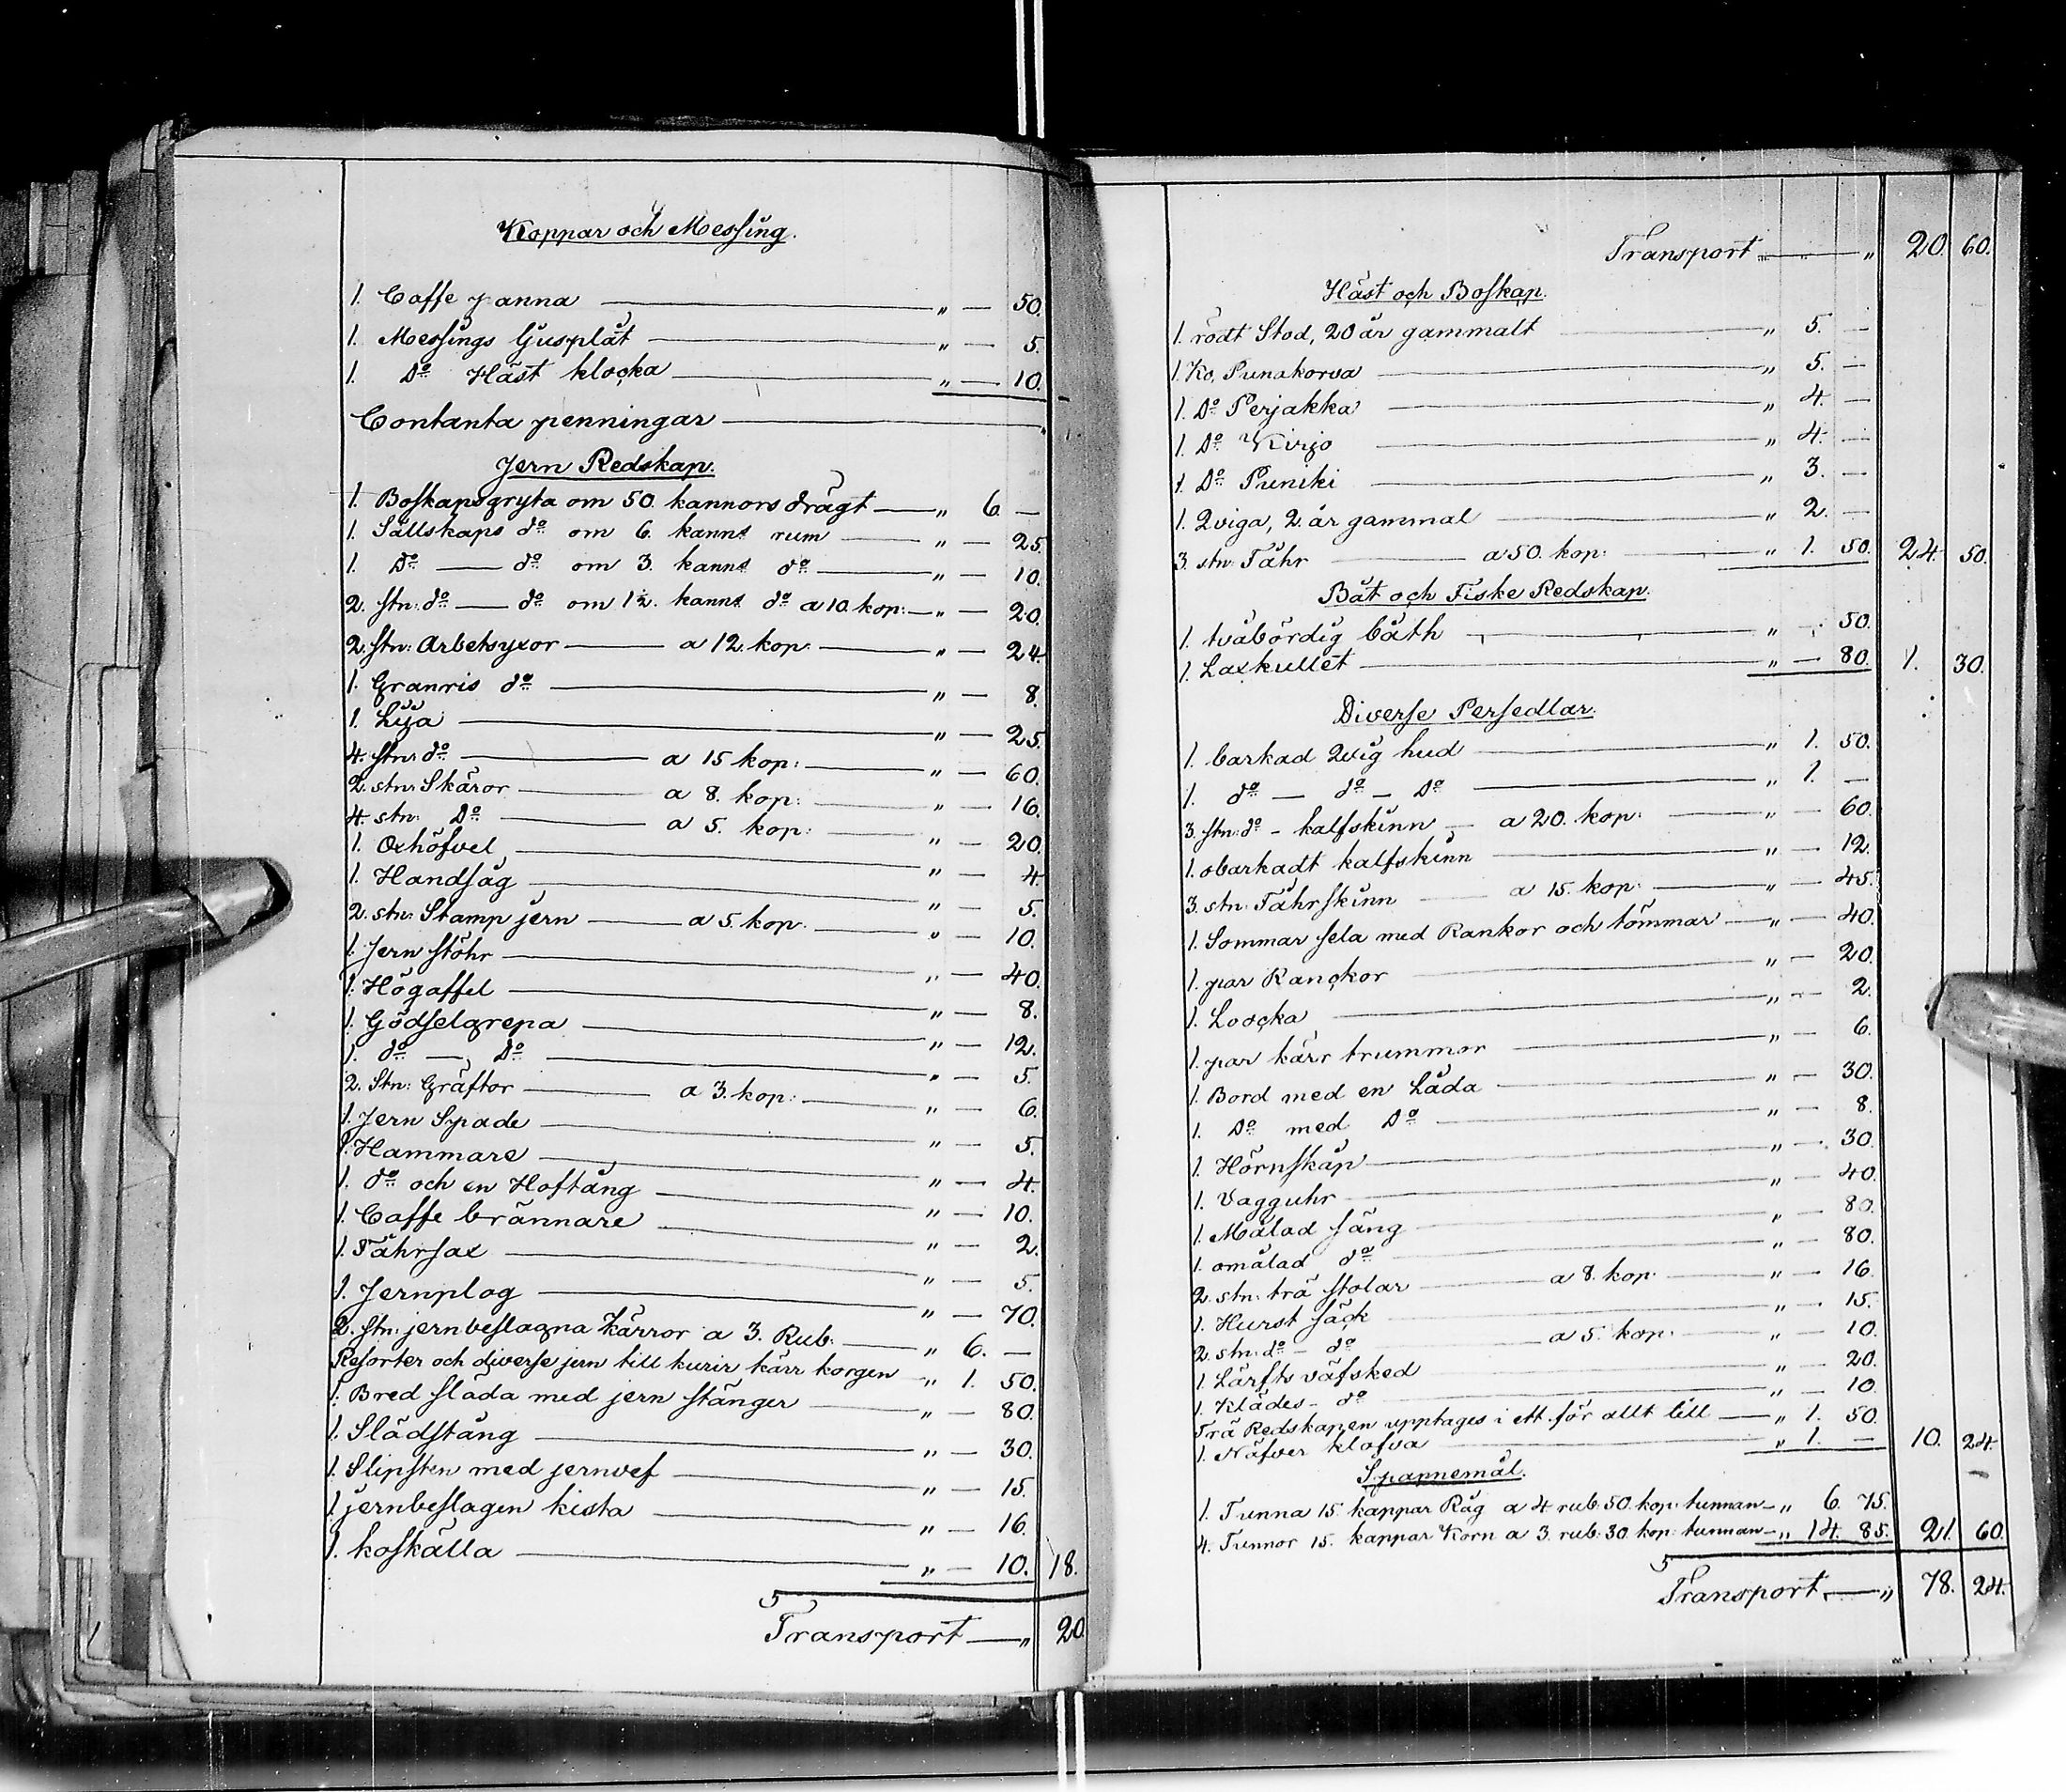 Koppar och Messing.
1. Caffe panna — " — 50.
1. Messings ljusplåt — " — 5.
1. Do Häst klocka — " — 10.
Contanta penningar —
Jern Redskap.
1. Boskapsgryta om 50. kannors drägt — " 6. —
1. Sällskaps do om 6. kanns rum — " — 25.
1. Do — do om 3. kanns do — " — 10.
2. stn: do — do om 1½. kanns do a 10. kop: — " — 20.
2. stn: Arbetsyxor — a 12. kop. — " — 24.
1. Granris do — " — 8.
1. Lija — " — 25.
4. stn: do — a 15 kop: — " — 60.
2. stn: Skäror — a 8. kop: — " — 16.
4. stn: Do — a 5. kop: — " — 20.
1. Oxhöfvel — " — 4.
1. Handsåg — " — 5.
2. stn: Stamp jern — a 5. kop. — " — 10.
1. Jern stöhr — " — 40.
1. Högaffel — " — 8.
1. Gödselgrepa — " — 12.
1. do — Do — " — 5.
2. Stn: Gräftor — a 3. kop: — " — 6.
1. Jern Spade — " — 5.
1. Hammare — " — 4.
1. do och en Hoftång — " — 10.
1. Caffe brännare — " — 2.
1. Fåhrsax — " — 5.
1. Jernplog — " — 70.
2. stn: jernbeslagna kärror a 3. Rub. — " 6. —
Resorter och diverse jern till kurir kärr korgen — " 1. 50.
1. Bred släda med jern stänger — " — 80.
1. Slädstång — " — 30.
1. Slipsten med jernvef — " — 15.
1. jernbeslagen kista — " — 16.
1. koskälla — " — 10. 18.
Transport — " 20.
Transport — " 20. 60.
Häst och Boskap.
1. rödt Stod, 20 år gammalt — " 5. —
1. Ko, Punakorva — " 5. —
1. Do Perjakka — " 4. —
1. Do Kirjo — " 4. —
1. Do Puniki — " 3. —
1. Qviga, 2. år gammal — " 2. —
3. stn: Fåhr — a 50. kop: — " 1. 50. 24. 50.
Båt och Fiske Redskap.
1. tvåbördig båth — " — 50.
1. Laxkullet — " — 80. 1. 30.
Diverse Persedlar.
1. barkad Qvig hud — " 1. 50.
1. do — do — Do — " 1. —
3. stn: do — kalfskinn — a 20. kop: — " — 60.
1. obarkadt kalfskinn — " — 12.
3. stn: Fåhrskinn — a 15. kop: — " — 45.
1. Sommar sela med Rankor och tömmar — " — 40.
1. par Ranckor — " — 20.
1. Loocka — " — 2.
1. par kärr trummor — " — 6.
1. Bord med en Låda — " — 30.
1. Do med Do — " — 8.
1. Hörnskåp — " — 30.
1. Vagguhr — " — 40.
1. Målad säng — " — 80.
1. omålad do — " — 80.
2. stn: trä stolar — a 8. kop. — " — 16.
1. Hurst säck — " — 15.
2. stn: do — do — a 5. kop: — " — 10.
1. Lärfts väfsked — " — 20.
1. Klädes — do — " — 10.
Trä Redskapen upptages i ett för allt till — " 1. 50.
1. Näfver klofva — " 1. — 10. 24.
Spannemål.
1. Tunna 15. kappar Råg a 4 rub: 50. kop: tunnan — " 6. 75.
4. Tunnor 15. kappar Korn a 3. rub: 30 kop: tunnan — " 14. 85. 21. 60.
Transport — " 78. 24.